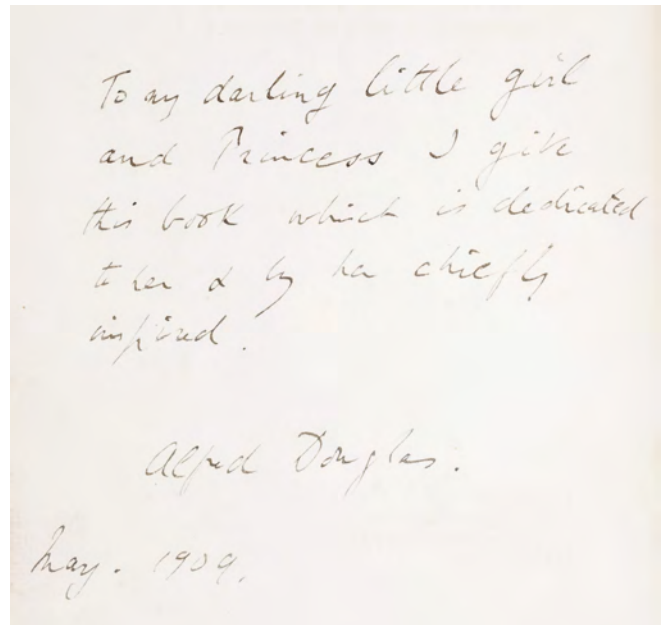 To my darling little girl
and Princess I give
this book which is dedicated
to her & by her chiefly
inspired.
Alfred Douglas.
May. 1909.